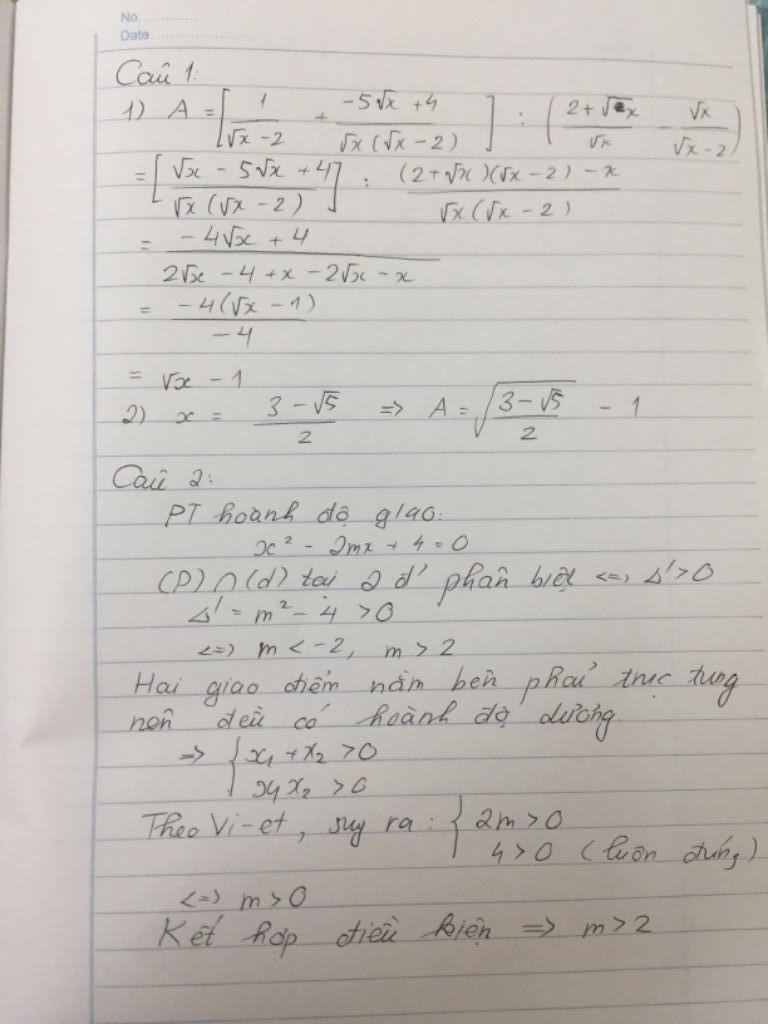 No. ..............
Date ..............................
Câu 1:
1) A = [ 1/(√x - 2) + (-5√x + 4)/(√x(√x - 2)) ] : ( (2 + √x)/√x - √x/(√x - 2) )
= [ (√x - 5√x + 4)/(√x(√x - 2)) ] : ((2+√x)(√x - 2) - x)/(√x(√x - 2))
= (-4√x + 4)/(2√x - 4 + x - 2√x - x)
= (-4(√x - 1))/(-4)
= √x - 1
2) x = (3 - √5)/2 => A = √((3 - √5)/2) - 1
Câu 2:
PT hoành độ giao:
x² - 2mx + 4 = 0
(P) ∩ (d) tại 2 đ' phân biệt <=> Δ' > 0
Δ' = m² - 4 > 0
<=> m < -2, m > 2
Hai giao điểm nằm bên phải trục tung
nên đều có hoành độ dương.
=> { x₁ + x₂ > 0
x₁x₂ > 0
Theo Vi-et, suy ra: { 2m > 0
4 > 0 (luôn đúng)
<=> m > 0
Kết hợp điều kiện => m > 2